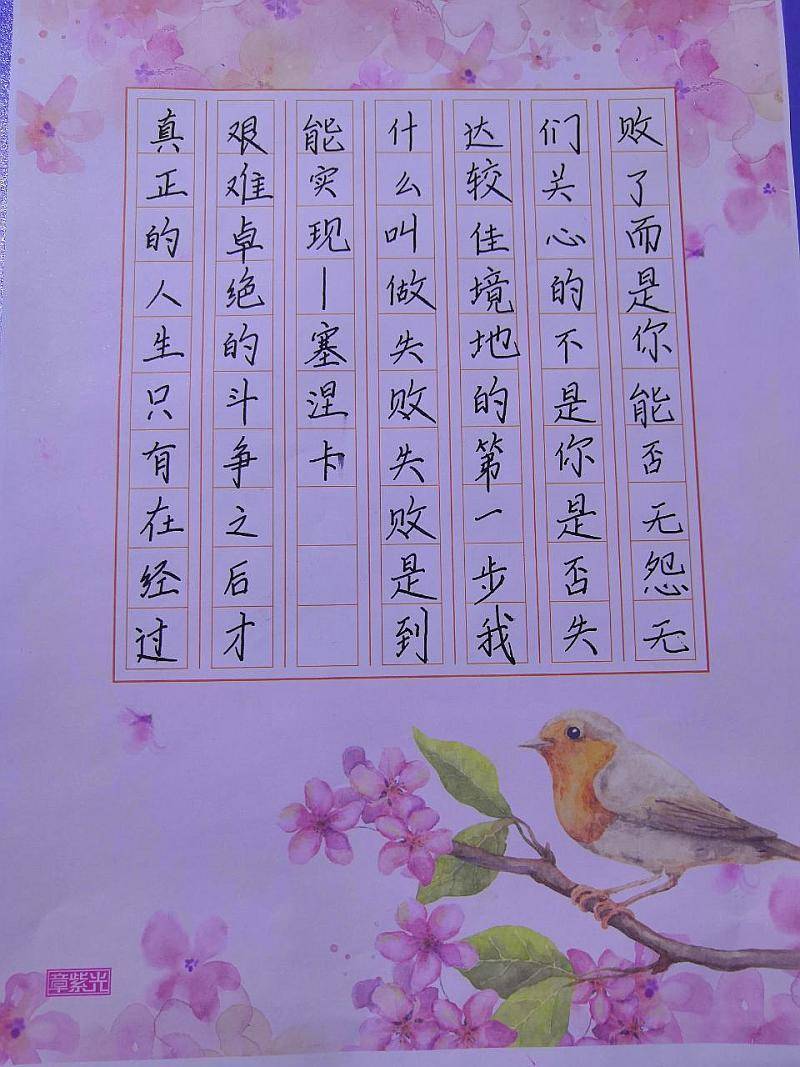 真正的人生只有在经过
艰难卓绝的斗争之后才
能实现—塞涅卡
什么叫做失败失败是到
达较佳境地的第一步我
们关心的不是你是否失
败了而是你能否无怨无
章紫光